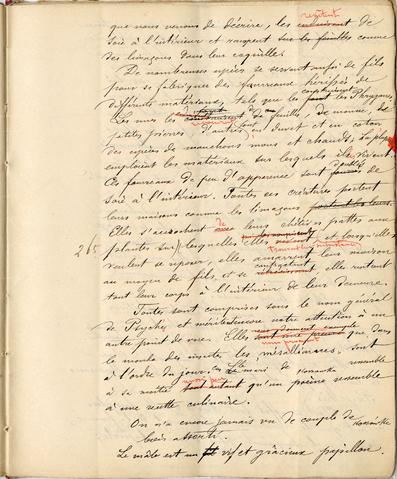 que nous venons de décrire, les enduisent revêtent de
soie à l'intérieur et rampent sur les feuilles comme
des limaçons dans leur coquille.
De nombreuses espèces se servent aussi de fils
pour se fabriquer des fourreaux hérissés de
différents matériaux, tels que les font les Phryganes.
Les uns les de feuilles, de mousse, de
petites pierres, d'autres en duvet et en coton
des espèces de manchons mous et chauds, la plupart
emploient les matériaux sur lesquels ils vivent.
Ces fourreaux de peu d'apparence sont de
soie à l'intérieur. Toutes ces créatures portent
leurs maisons comme les limaçons
Elles s'accrochent avec leurs chétives pattes aux
plantes sur lesquelles elles et lorsqu'elles
265
veulent se reposer, elles amarrent leur maison
au moyen de fils, et se elles rentrent
tout leur corps à l'intérieur de leur demeure.
Toutes sont comprises sous le nom général
de Psychés, et méritent encore notre attention à un
autre point de vue. Elles que dans
le monde des insectes les mésalliances sont
à l'ordre du jour. Le mari de ressemble
à sa moitié autant qu'un poème ressemble
à une recette culinaire.
On n'a encore jamais vu de couple de
bien assorti.
Le mâle est un vif et gracieux papillon.